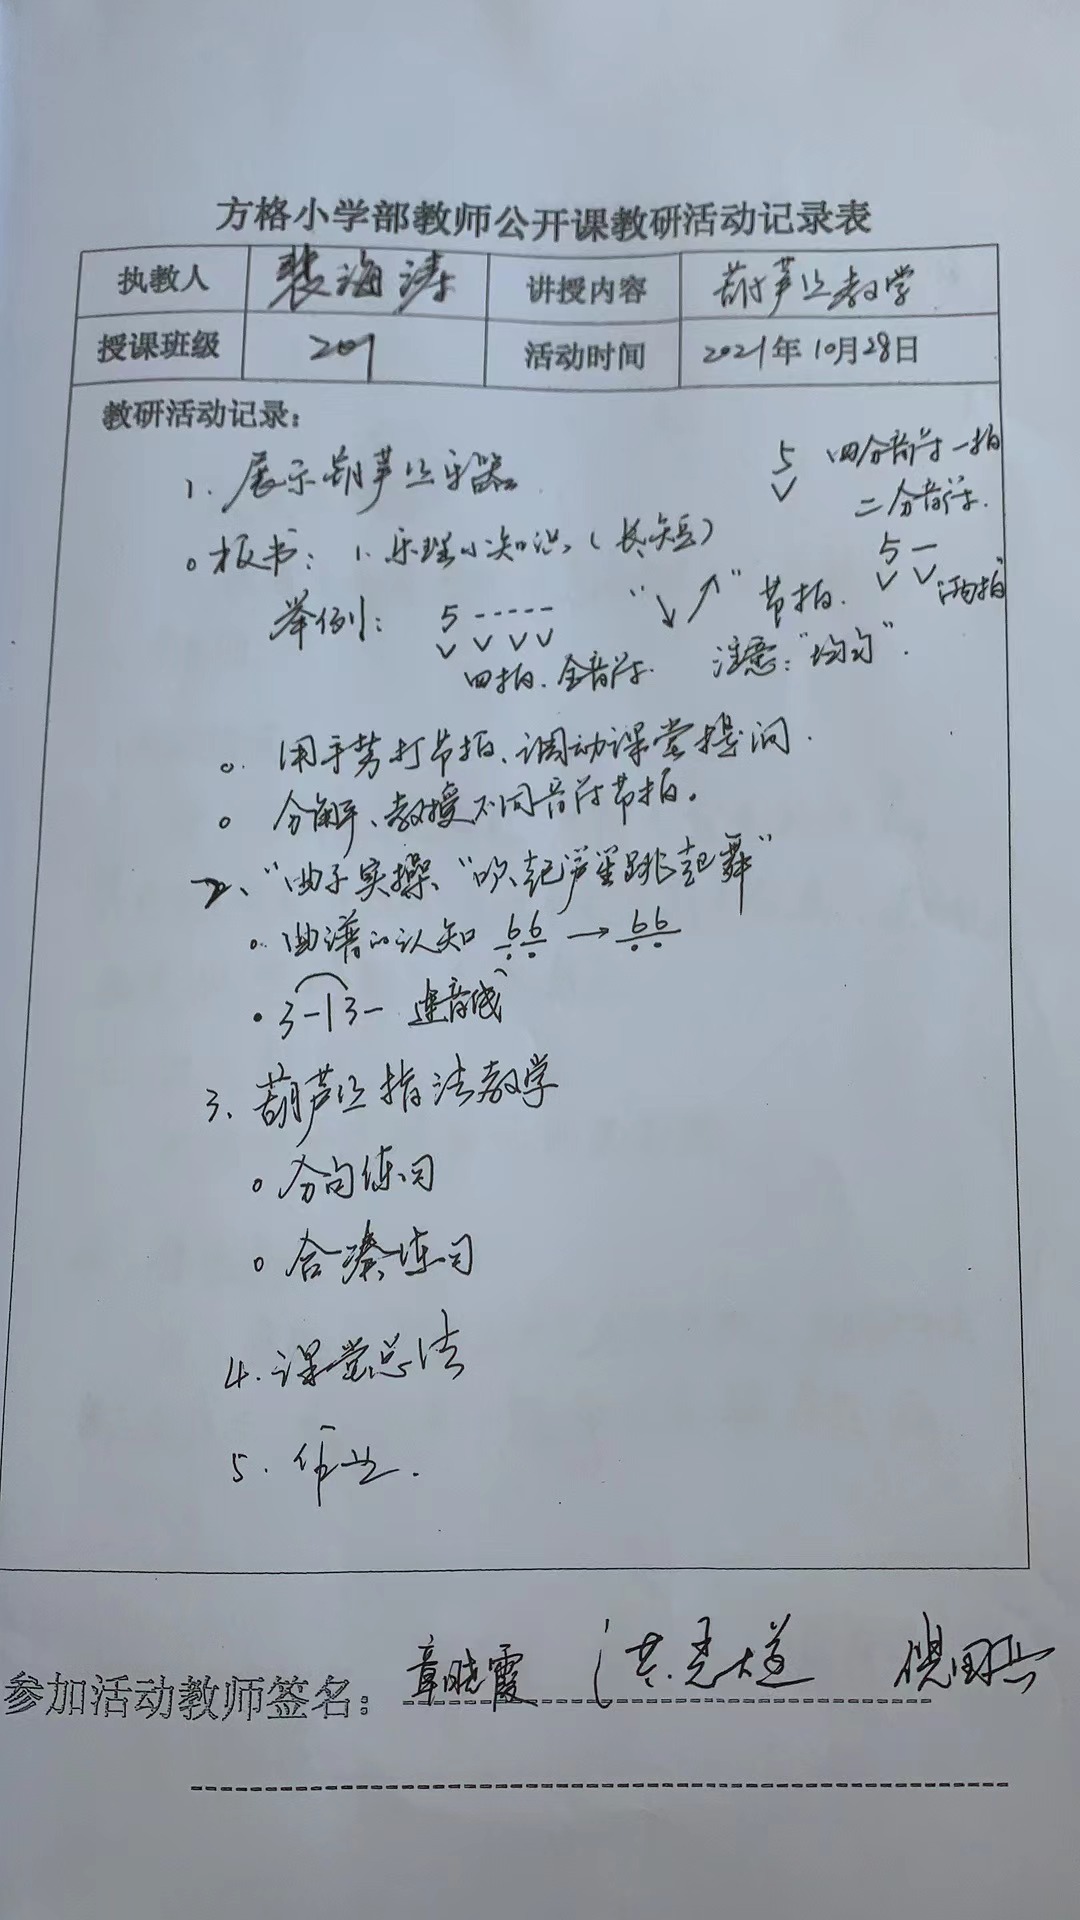 方格小学部教师公开课教研活动记录表
执教人 裴海涛 讲授内容 葫芦丝教学
授课班级 201 活动时间 2021年10月28日
教研活动记录：
1、展示葫芦丝乐器
5 四分音符 一拍
二分音符.
5 —
"两拍"
板书：1. 乐理小知识（长短）
举例：5 - - - - -
"↘↗" 节拍.
四拍. 全音符.
注意："均匀".
用手势打节拍、调动课堂提问.
分解、教授不同音符节拍。
2、"曲子实操、"吹起芦笙跳起舞"
曲谱的认知 66 → 66
3 - | 3 - 连音线
3、葫芦丝指法教学
分句练习
合凑练习
4. 课堂总结
5. 作业.
参加活动教师签名：章晓霞